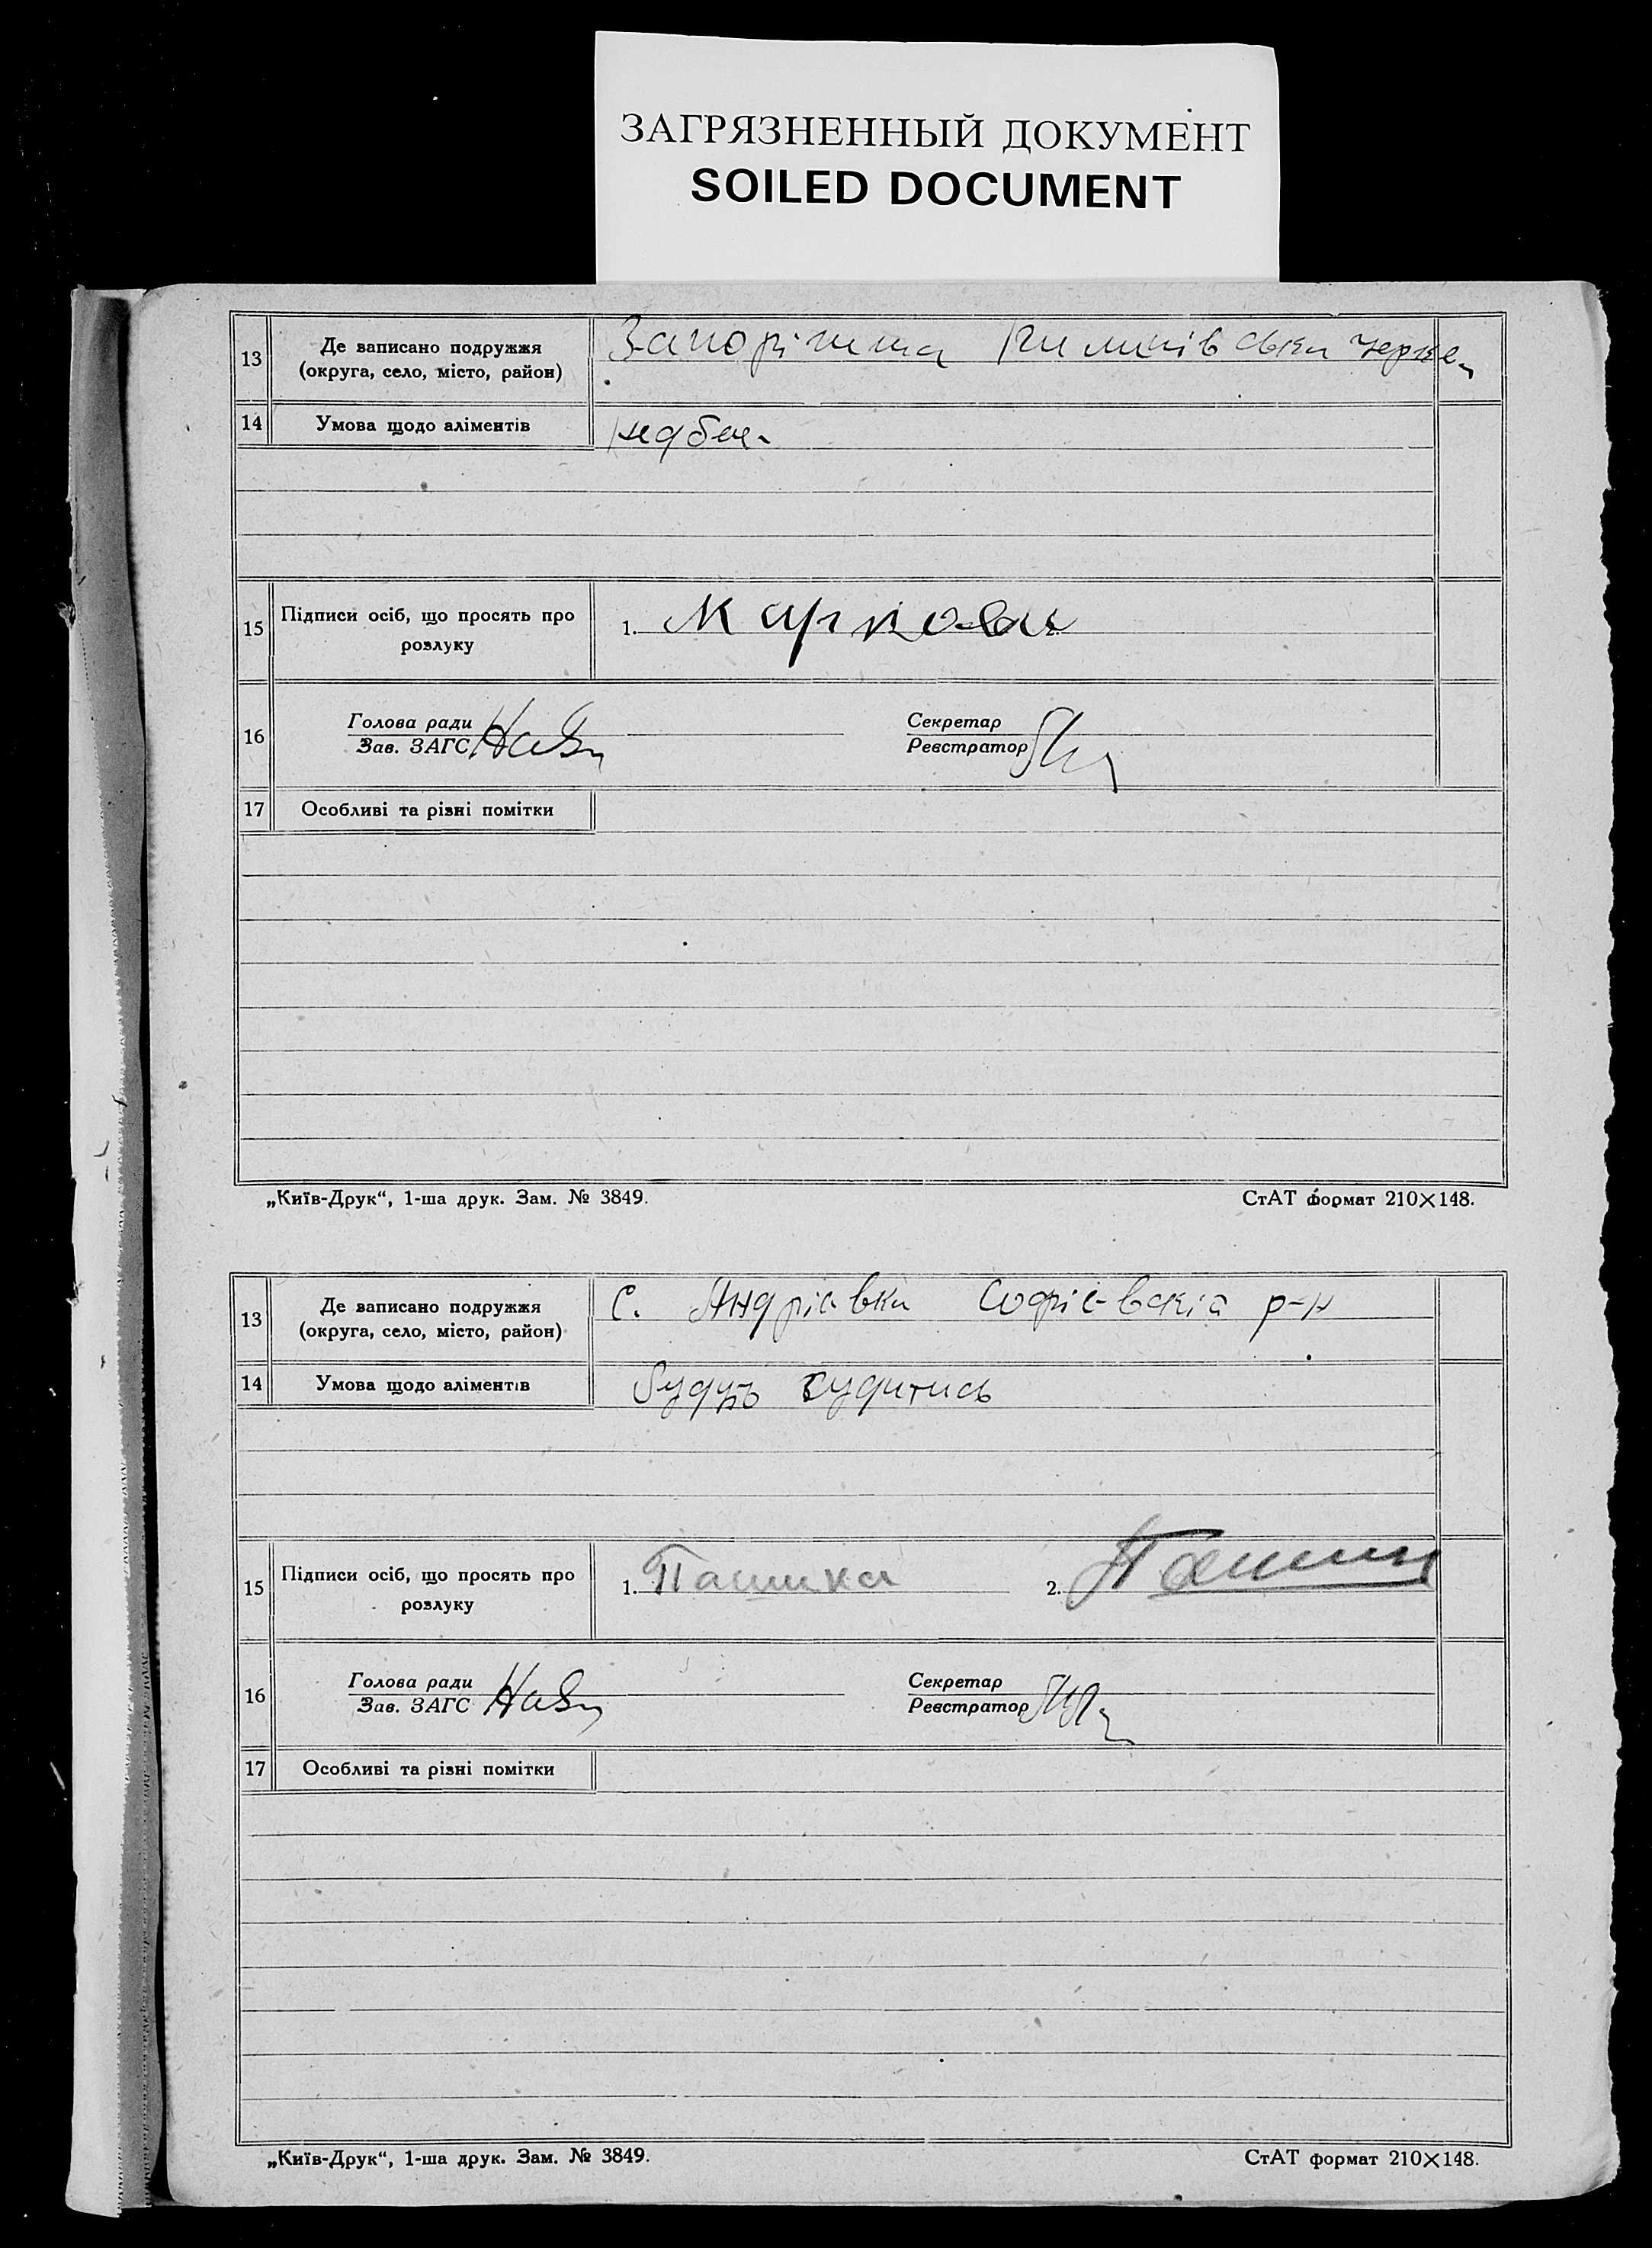 ЗАГРЯЗНЕННЫЙ ДОКУМЕНТ
SOILED DOCUMENT
13 Де записано подружжя
(округа, село, місто, район)
14 Умова щодо аліментів
15 Підписи осіб, що просять про
розлуку
1.
16 Голова ради
Зав. ЗАГС
Секретар
Реєстратор
17 Особливі та різні помітки
„Київ-Друк“, 1-ша друк. Зам. № 3849.
СтАТ формат 210×148.
13 Де записано подружжя
(округа, село, місто, район)
С. Андріівка Софіевскій р-н
14 Умова щодо аліментів
Будуть судитись
15 Підписи осіб, що просять про
розлуку
1. Пашика
2.
16 Голова ради
Зав. ЗАГС
Секретар
Реєстратор
17 Особливі та різні помітки
„Київ-Друк“, 1-ша друк. Зам. № 3849.
СтАТ формат 210×148.